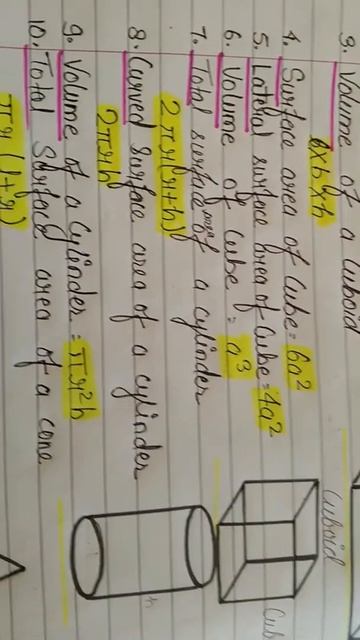 3. Volume of a Cuboid
l×b×h
4. Surface area of Cube = 6a²
5. Lateral surface area of Cube = 4a²
6. Volume of Cube = a³
7. Total surface area of a cylinder
2πr(r+h)
8. Curved surface area of a cylinder
2πrh
9. Volume of a Cylinder = πr²h
10. Total Surface area of a cone
πr(l+r)
Cuboid
Cu
h